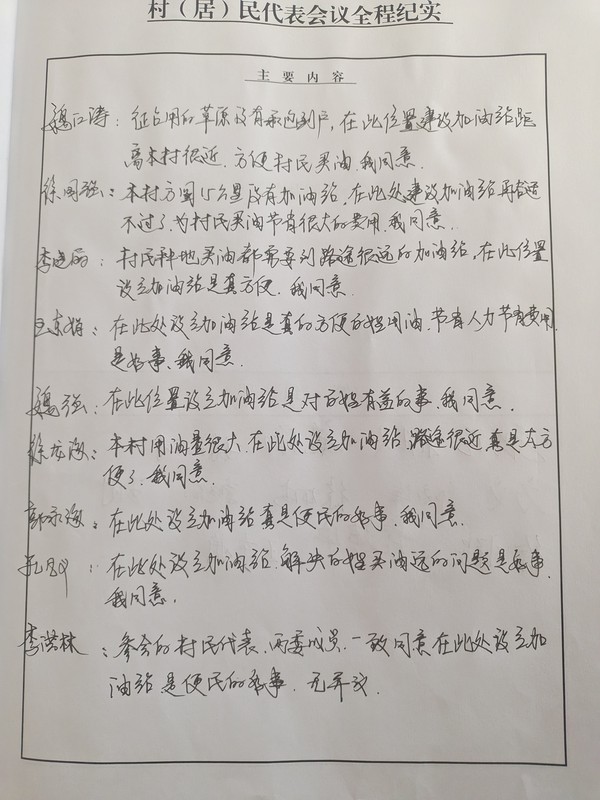 村（居）民代表会议全程纪实
主要内容
魏江涛：征占用的草原没有承包到户，在此位置建设加油站距
离本村很近，方便村民买油，我同意．
徐国强：本村方圆15公里没有加油站，在此处建设加油站再合适
不过了，为村民买油节省很大的费用，我同意．
李建丽：村民种地买油都需要到路途很远的加油站，在此位置
设立加油站是真方便．我同意．
王东娟：在此处设立加油站是真的方便百姓用油，节省人力节省费用
是好事，我同意．
魏强：在此位置设立加油站是对百姓有益的事，我同意．
徐龙海：本村用油量很大，在此处设立加油站，路途很近真是太方
便了，我同意．
郭永海：在此处设立加油站真是便民的好事，我同意．
：在此处设立加油站，解决百姓买油远的问题是好事，
我同意．
李洪林：参会的村民代表，两委成员，一致同意在此处设立加
油站是便民的好事．无异议．